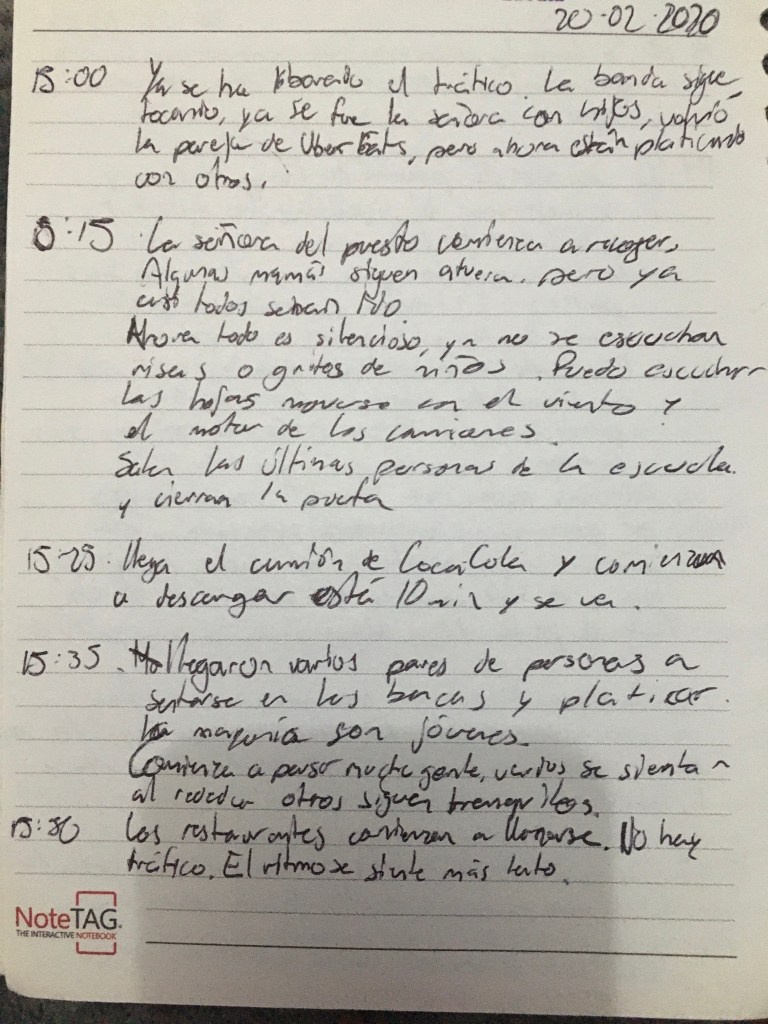 20·02·2020
15:00 Ya se ha liberado el tráfico. La banda sigue
tocando, ya se fue la señora con hijos, volvió
la pareja de Uber Eats, pero ahora están platicando
con otros.
:15 La señora del puesto comienza a recoger,
Algunas mamás siguen afuera. pero ya
casi todos se han ido
Ahora todo es silencioso, ya no se escuchan
risas o gritos de niños. Puedo escuchar
las hojas moverse con el viento y
el motor de los camiones.
Salen las últimas personas de la escuela.
y cierran la puerta
15:25. llega el camión de Coca Cola y comienzan
a descargar está 10 min y se va.
15:35. llegaron varios pares de personas a
sentarse en las bancas y platicar.
la mayoría son jóvenes.
Comienza a pasar mucha gente, varios se sientan
al rededor otros siguen tranquilos.
15:50 Los restaurantes comienzan a llenarse. No hay
tráfico. El ritmo se siente más lento.
NoteTAG.
THE INTERACTIVE NOTEBOOK